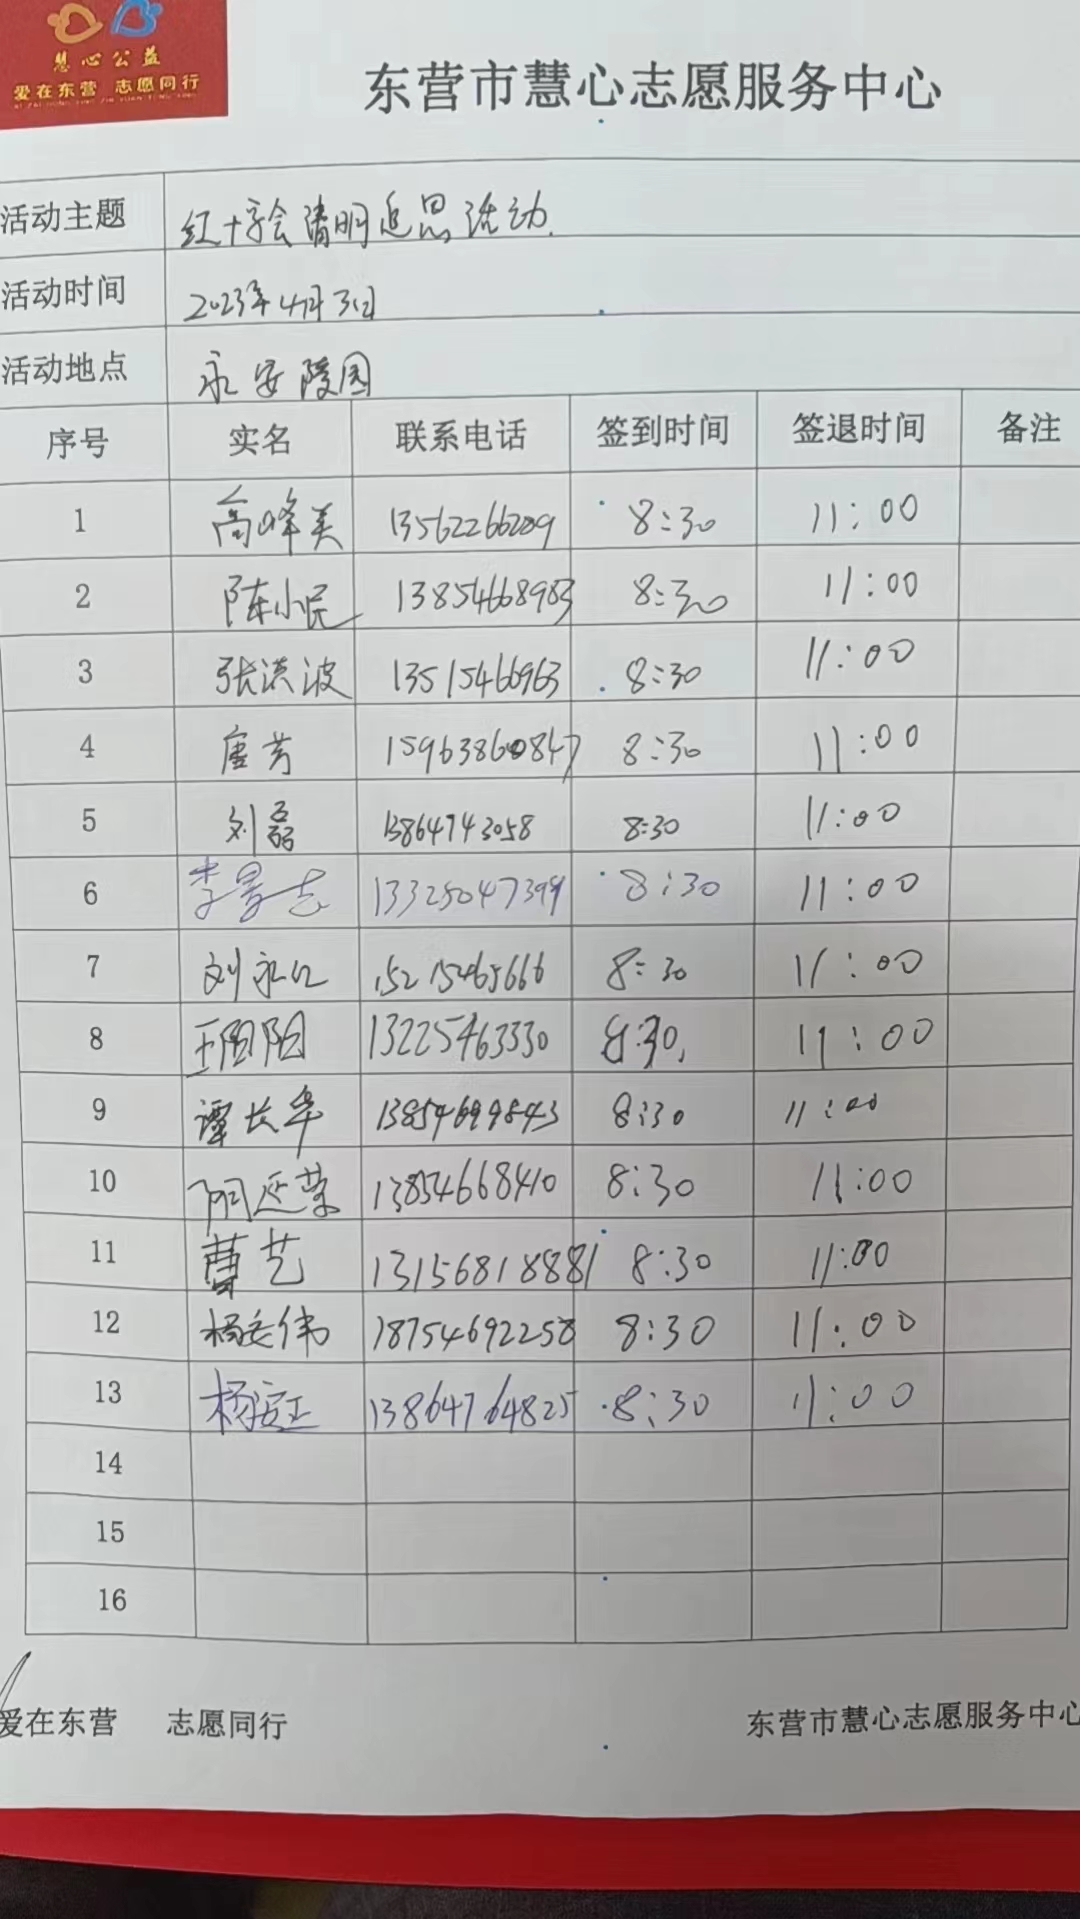 慧心公益
爱在东营 志愿同行
东营市慧心志愿服务中心
活动主题 红十字会清明追思活动
活动时间 2023年4月3日
活动地点 永安陵园
序号 实名 联系电话 签到时间 签退时间 备注
1 高峰美 13562266209 8:30 11:00
2 陈小民 13854668983 8:30 11:00
3 张洪波 13515466963 8:30 11:00
4 唐芳 15963860847 8:30 11:00
5 刘磊 13864743058 8:30 11:00
6 李景志 8:30 11:00
7 刘永仁 15215465666 8:30 11:00
8 王阳阳 13225463330 8:30 11:00
9 谭长华 13854699843 8:30 11:00
10 13854668410 8:30 11:00
11 曹艺 13156818881 8:30 11:00
12 18754692258 8:30 11:00
13 13864764825 8:30 11:00
14
15
16
爱在东营 志愿同行 东营市慧心志愿服务中心